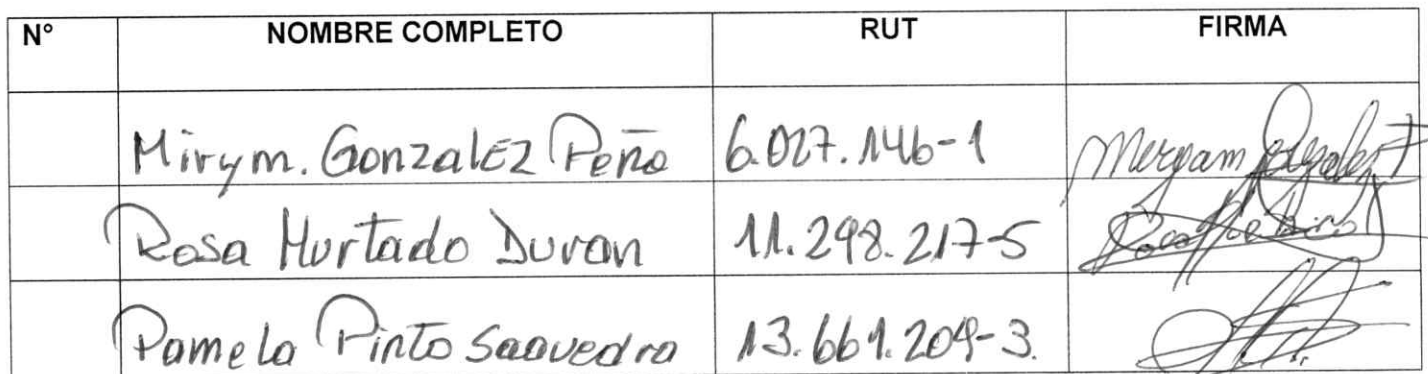 N° NOMBRE COMPLETO RUT FIRMA
Mirym. Gonzalez Peña 6.027.146-1 Meryam Gonzalez P
Rosa Hurtado Duran 11.298.217-5
Pamela Pinto Saavedra 13.661.209-3.